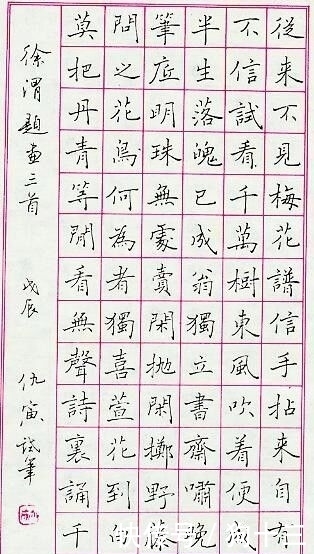 從来不見梅花譜信手拈来自
不信試看千萬樹東風吹着便
半生落魄已成翁獨立書齋嘯晚
筆底明珠無處賣閑抛閑擲野藤
問之花鳥何為者獨喜萱花到白
莫把丹青等閒看無聲詩裏誦千
徐渭題畫三首 戊辰 仇寅試筆